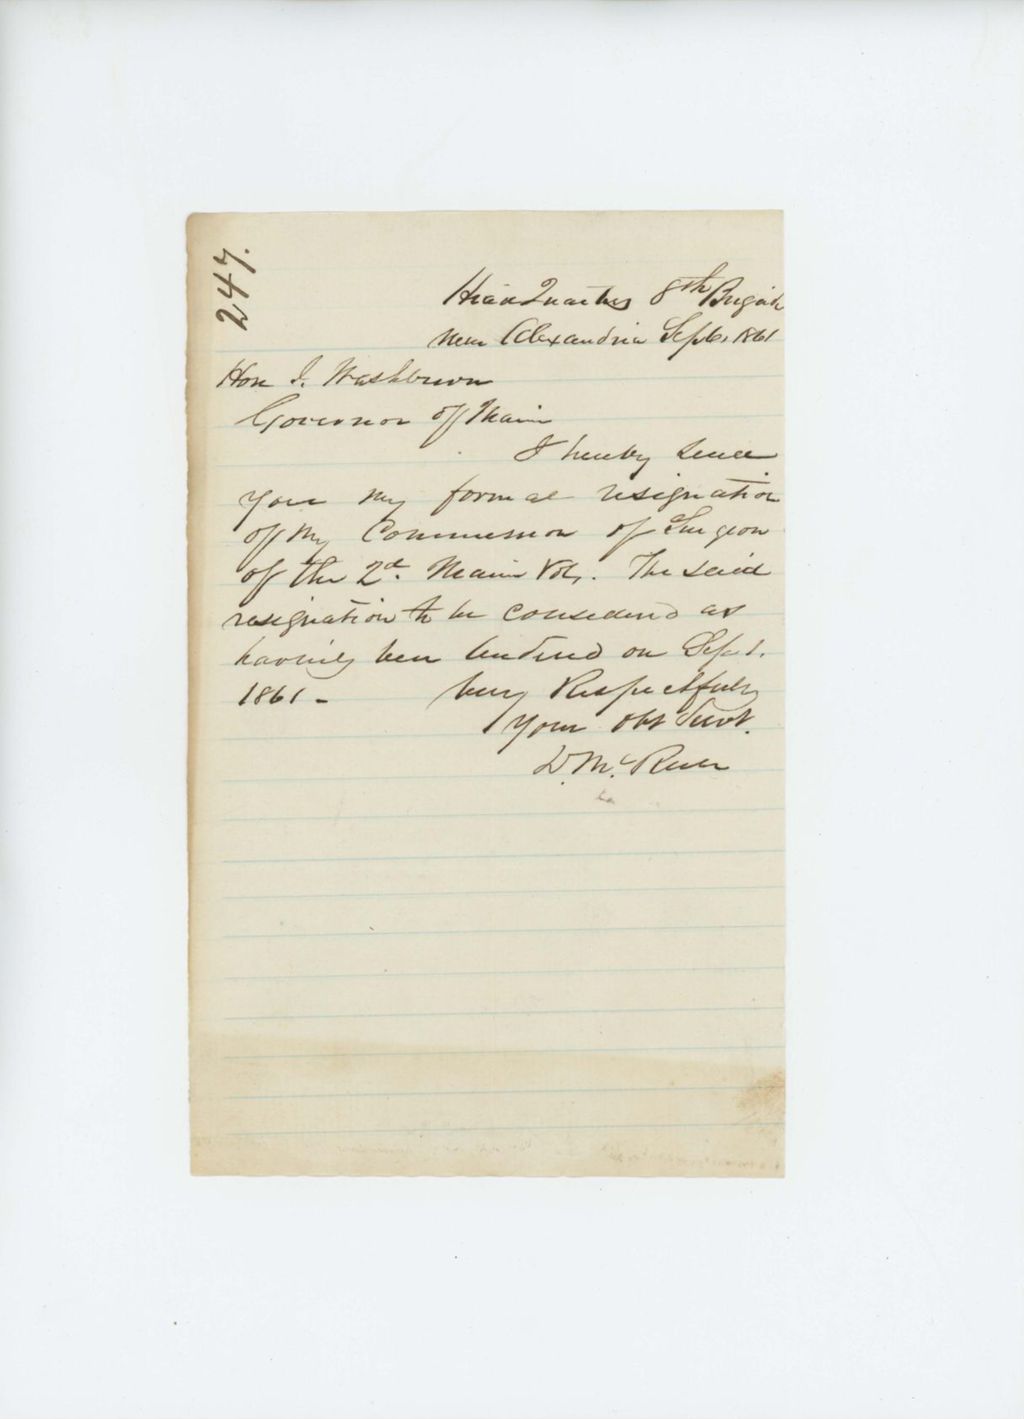 247.
Head Quarters 8th Brigade
near Alexandria Sept 6, 1861
Hon I. Washburn
Governor of Maine
I hereby send
you my formal resignation
of my Commission of Surgeon
of the 2d. Maine Vols. The said
resignation to be considered as
having been tendered on Sept 1.
1861 - Very Respectfully
Your Obt Servt.
D. Mc Ruer